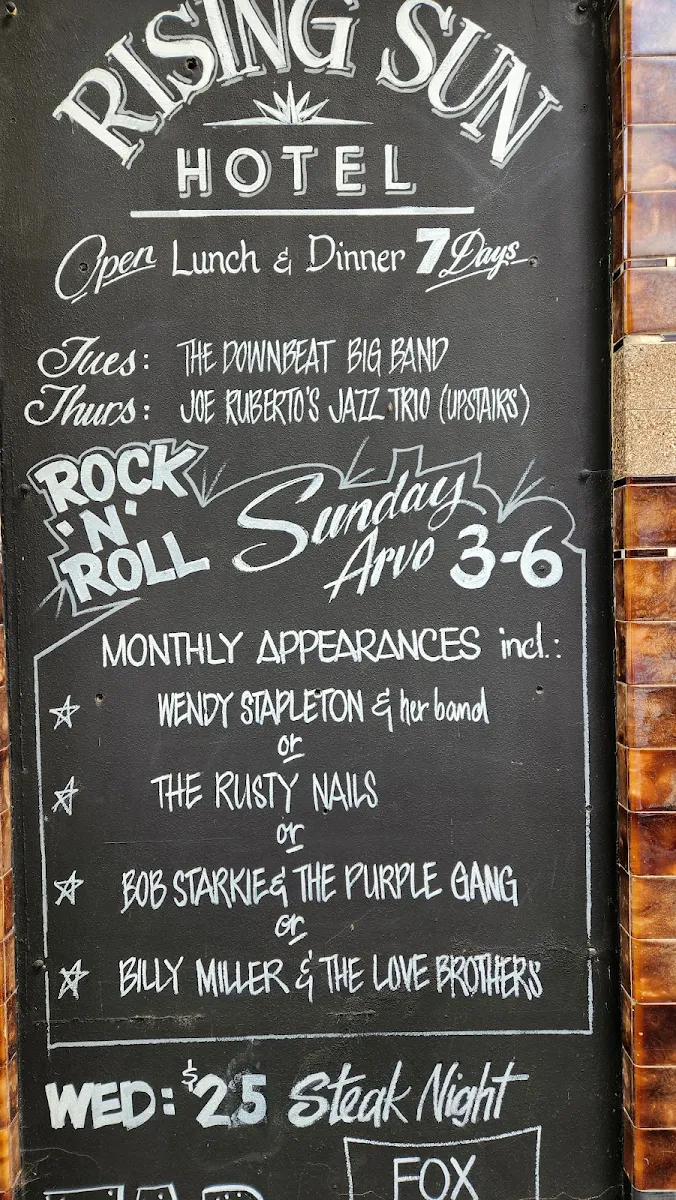 RISING SUN
HOTEL
Open Lunch & Dinner 7 Days
Tues: THE DOWNBEAT BIG BAND
Thurs: JOE RUBERTO'S JAZZ TRIO (UPSTAIRS)
ROCK
'N'
ROLL
Sunday
Arvo 3-6
MONTHLY APPEARANCES incl.:
WENDY STAPLETON & her band
or
THE RUSTY NAILS
or
BOB STARKIE & THE PURPLE GANG
or
BILLY MILLER & THE LOVE BROTHERS
WED: $25 Steak Night
FOX